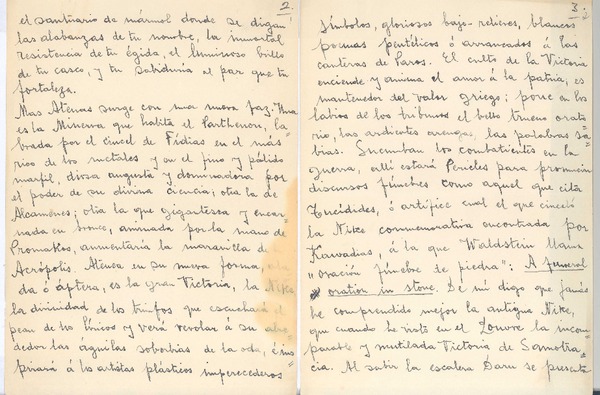 2
el santuario de mármol donde se digan
las alabanzas de tu nombre, la inmortal
resistencia de tu égida, el luminoso brillo
de tu casco, y tu sabiduría al par que tu
fortaleza.
Mas Atenas surge con una nueva faz. Una
es la Minerva que habita el Parthenon, la-
brada por el cincel de Fidias en el más
rico de los metales y en el fino y pálido
marfil, diosa augusta y dominadora por
el poder de su divina ciencia; otra la de
Alcamenes; otra la que gigantesca y encar-
nada en bronce, animada por la mano de
Promakos, aumentaría la maravilla de
Acrópolis. Atenea en su nueva forma, ala
da ó áptera, es la Gran Victoria, la Nike
la divinidad de los triunfos que escuchará el
pean de los líricos y verá revolar á su alre-
dedor las águilas soberbias de la oda, é ins
pirará á los artistas plásticos imperecederos
3
símbolos, gloriosos bajo-relieves, blancos
poemas pentélicos ó arrancados á las
canteras de Paros. El culto de la Victoria
enciende y anima el amor á la patria, es
mantenedor del valor griego; pone en los
labios de los tribunos el bello trueno orato
rio, las ardientes arengas, las palabras sa-
bias. Sucumban los combatientes en la
guerra, allí estará Pericles para pronunciar
discursos fúnebres como aquel que cita
Tucídides, ó artífice cual el que cinceló
la Nike conmemorativa encontrada por
Kavvadias, á la que Waldstein llama
"oración fúnebre de piedra": A funeral
oration in stone. De mí digo que jamás
he comprendido mejor la antigua Nike,
que cuando he visto en el Louvre la incom
parable y mutilada Victoria de Samotra-
cia. Al subir la escalera Daru se presenta